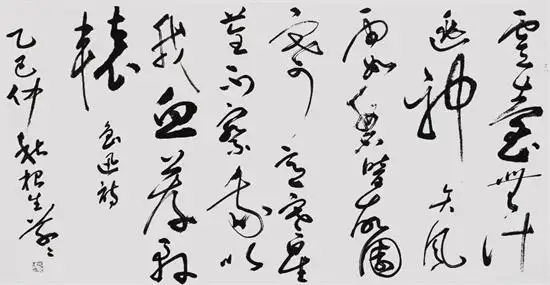 靈臺無計
逃神矢風
雨如磐暗故園
寄意寒星
荃不察我以
我血薦軒
轅
魯迅詩
乙巳仲秋根生